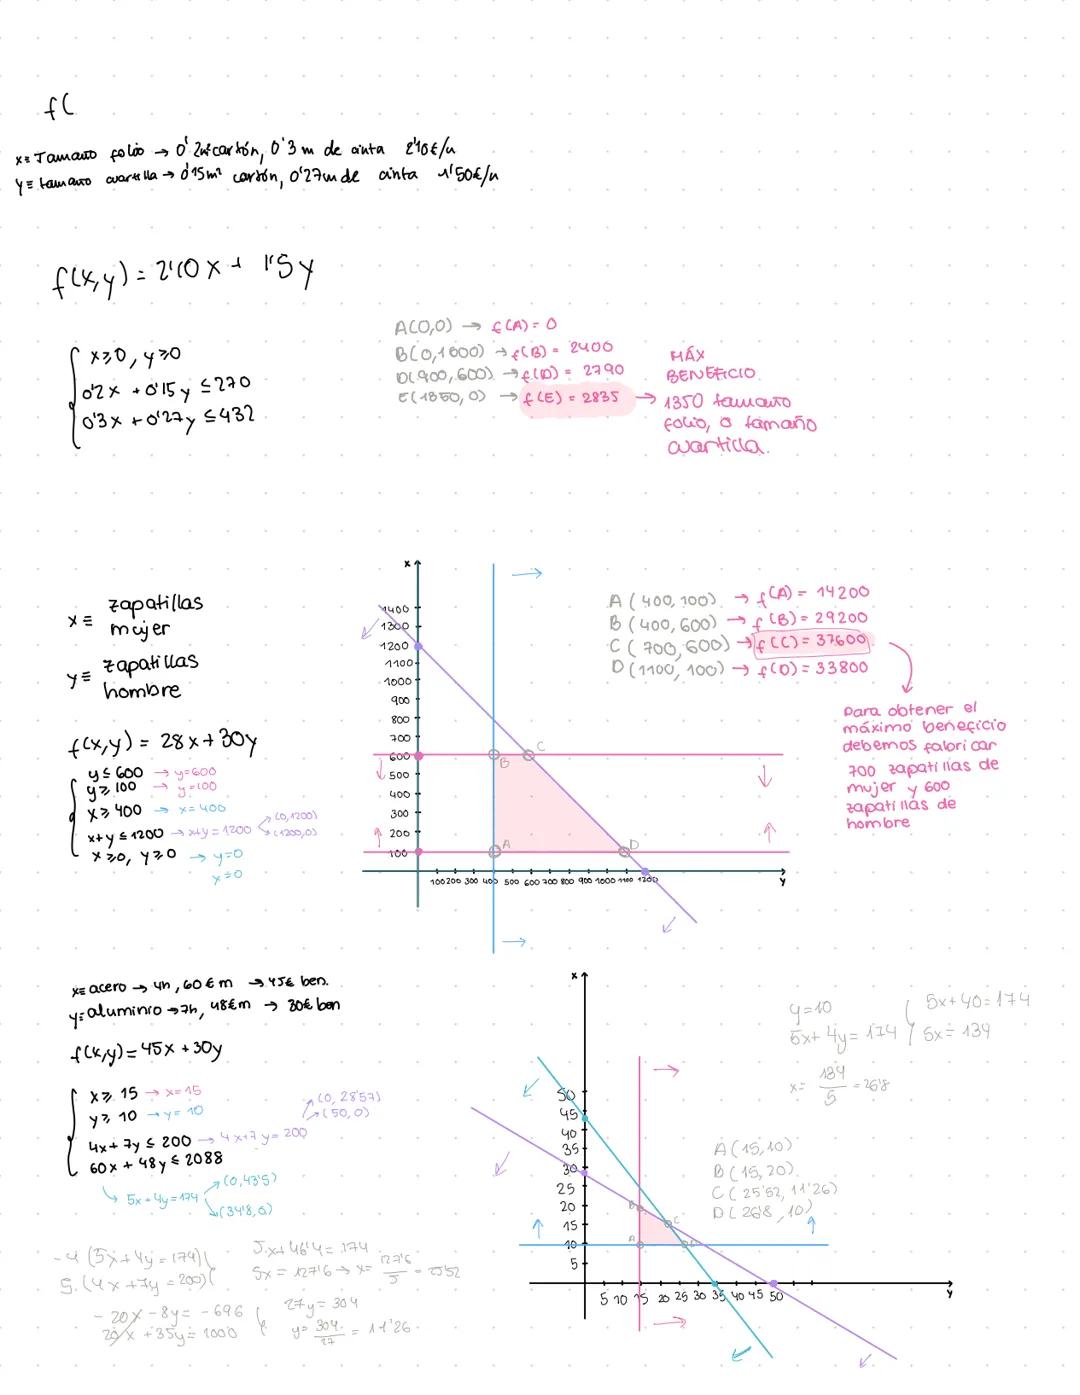 f(
x≡ Tamaño folio → 0'2m² cartón, 0'3 m de cinta 2'10€/u
y≡ tamaño cuartilla → 0'15m² cartón, 0'27m de cinta 1'50€/u
f(x,y) = 2'10x + 1'5y
x≥0, y≥0
0'2x + 0'15y ≤ 270
0'3x + 0'27y ≤ 432
A(0,0) → f(A) = 0
B(0,1600) → f(B) = 2400
D(900,600) → f(D) = 2790
E(1350,0) → f(E) = 2835 →
MÁX
BENEFICIO
1350 tamaño
folio, 0 tamaño
cuartilla.
x≡ zapatillas
mujer
y≡ zapatillas
hombre
f(x,y) = 28x+30y
y≤600 → y=600
y≥100 → y=100
x≥400 → x=400
x+y≤1200 → x+y=1200 (0,1200)
(1200,0)
x≥0, y≥0 → y=0
x=0
x
1400
1300
1200
1100
1000
900
800
700
600
500
400
300
200
100
100 200 300 400 500 600 700 800 900 1000 1100 1200
y
A
B
C
D
A(400,100) → f(A) = 14200
B(400,600) → f(B) = 29200
C(700,600) → f(C) = 37600
D(1100,100) → f(D) = 33800
Para obtener el
máximo beneficio
debemos fabricar
700 zapatillas de
mujer y 600
zapatillas de
hombre
x≡ acero → 4h, 60€m → 45€ ben.
y≡ aluminio → 7h, 48€m → 30€ ben
f(x,y) = 45x + 30y
x≥15 → x=15
y≥10 → y=10
4x+7y≤200 → 4x+7y=200
(0,28'57)
(50,0)
60x+48y≤2088
5x+4y=174
(0,43'5)
(34'8,0)
-4(5x+4y=174)
5.(4x+7y=200)
-20x-8y=-696
20x+35y=1000
5x+46'4=174
5x=127'6 → x= 127'6/5 = 25'52
27y=304
y= 304/27 = 11'26
x
50
45
40
35
30
25
20
15
10
5
5 10 15 20 25 30 35 40 45 50
y
A
B
C
D
y=10
5x+4y=174
5x+40=174
5x=134
x= 134/5 = 26'8
A(15,10)
B(15,20)
C(25'52,11'26)
D(26'8,10)